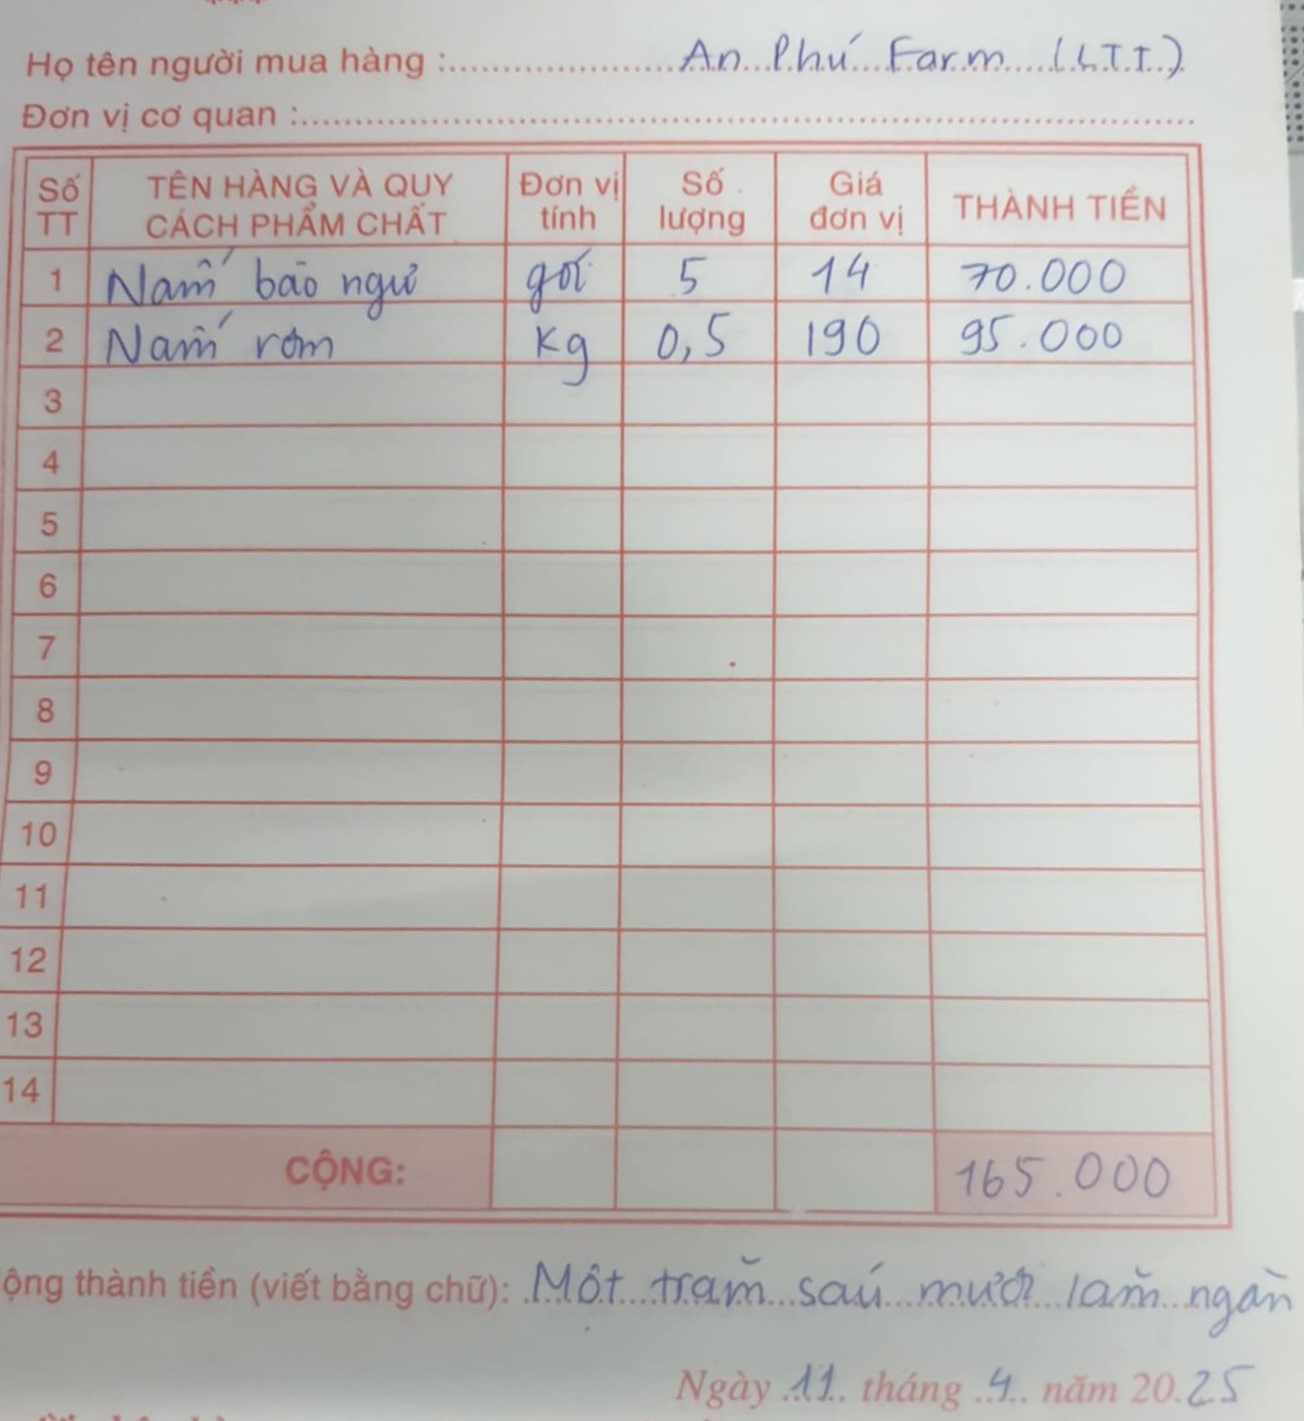 Họ tên người mua hàng : An Phú Farm (LTT)
Đơn vị cơ quan :
Số TT TÊN HÀNG VÀ QUY CÁCH PHẨM CHẤT Đơn vị tính Số lượng Giá đơn vị THÀNH TIỀN
1 Nấm bào ngư gói 5 14 70.000
2 Nấm rơm Kg 0,5 190 95.000
3
4
5
6
7
8
9
10
11
12
13
14
CỘNG: 165.000
ộng thành tiền (viết bằng chữ): Một trăm sáu mươi lăm ngàn
Ngày 11 tháng 4 năm 2025